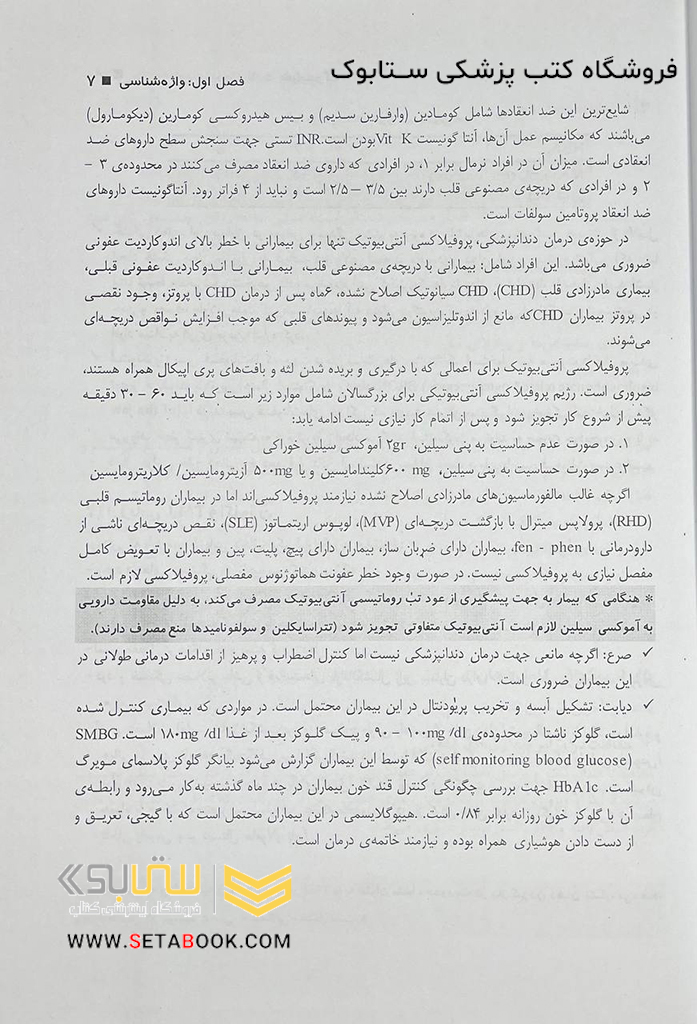 فروشگاه کتب پزشکی ستابوک
فصل اول: واژه‌شناسی ■ ۷
شایع‌ترین این ضد انعقادها شامل کومادین (وارفارین سدیم) و بیس هیدروکسی کومارین (دیکومارول)
می‌باشند که مکانیسم عمل آن‌ها، آنتا گونیست Vit K بودن است. INR تستی جهت سنجش سطح داروهای ضد
انعقادی است. میزان آن در افراد نرمال برابر ۱، در افرادی که داروی ضد انعقاد مصرف می‌کنند در محدوده‌ی ۳ –
۲ و در افرادی که دریچه‌ی مصنوعی قلب دارند بین ۳/۵ – ۲/۵ است و نباید از ۴ فراتر رود. آنتاگونیست داروهای
ضد انعقاد پروتامین سولفات است.
در حوزه‌ی درمان دندانپزشکی، پروفیلاکسی آنتی‌بیوتیک تنها برای بیمارانی با خطر بالای اندوکاردیت عفونی
ضروری می‌باشد. این افراد شامل: بیمارانی با دریچه‌ی مصنوعی قلب، بیمارانی با اندوکاردیت عفونی قبلی،
بیماری مادرزادی قلب (CHD)، CHD سیانوتیک اصلاح نشده، ۶ماه پس از درمان CHD با پروتز، وجود نقصی
در پروتز بیماران CHD که مانع از اندوتلیزاسیون می‌شود و پیوندهای قلبی که موجب افزایش نواقص دریچه‌ای
می‌شوند.
پروفیلاکسی آنتی‌بیوتیک برای اعمالی که با درگیری و بریده شدن لثه و بافت‌های پری اپیکال همراه هستند،
ضروری است. رژیم پروفیلاکسی آنتی‌بیوتیکی برای بزرگسالان شامل موارد زیر است که باید ۶۰ – ۳۰ دقیقه
پیش از شروع کار تجویز شود و پس از اتمام کار نیازی نیست ادامه یابد:
۱. در صورت عدم حساسیت به پنی سیلین، ۲gr آموکسی سیلین خوراکی
۲. در صورت حساسیت به پنی سیلین، ۶۰۰ mg کلیندامایسین و یا ۵۰۰mg آزیترومایسین/ کلاریترومایسین
اگرچه غالب مالفورماسیون‌های مادرزادی اصلاح نشده نیازمند پروفیلاکسی‌اند اما در بیماران روماتیسم قلبی
(RHD)، پرولاپس میترال با بازگشت دریچه‌ای (MVP)، لوپوس اریتماتوز (SLE)، نقص دریچه‌ای ناشی از
دارودرمانی با fen - phen، بیماران دارای ضربان ساز، بیماران دارای پیچ، پلیت، پین و بیماران با تعویض کامل
مفصل نیازی به پروفیلاکسی نیست. در صورت وجود خطر عفونت هماتوژنوس مفصلی، پروفیلاکسی لازم است.
* هنگامی که بیمار به جهت پیشگیری از عود تب روماتیسمی آنتی‌بیوتیک مصرف می‌کند، به دلیل مقاومت دارویی
به آموکسی سیلین لازم است آنتی‌بیوتیک متفاوتی تجویز شود (تتراسایکلین و سولفونامیدها منع مصرف دارند).
✓ صرع: اگرچه مانعی جهت درمان دندانپزشکی نیست اما کنترل اضطراب و پرهیز از اقدامات درمانی طولانی در
این بیماران ضروری است.
✓ دیابت: تشکیل آبسه و تخریب پریودنتال در این بیماران محتمل است. در مواردی که بیماری کنترل شده
است، گلوکز ناشتا در محدوده‌ی ۹۰ – ۱۰۰mg /dl و پیک گلوکز بعد از غذا ۱۸۰mg /dl است. SMBG
(self monitoring blood glucose) که توسط این بیماران گزارش می‌شود بیانگر گلوکز پلاسمای مویرگ
است. HbA1c جهت بررسی چگونگی کنترل قند خون بیماران در چند ماه گذشته به‌کار می‌رود و رابطه‌ی
آن با گلوکز خون روزانه برابر ۰/۸۴ است. .هیپوگلایسمی در این بیماران محتمل است که با گیجی، تعریق و
از دست دادن هوشیاری همراه بوده و نیازمند خاتمه‌ی درمان است.
ستابوک
فروشگاه اینترنتی کتاب
WWW.SETABOOK.COM